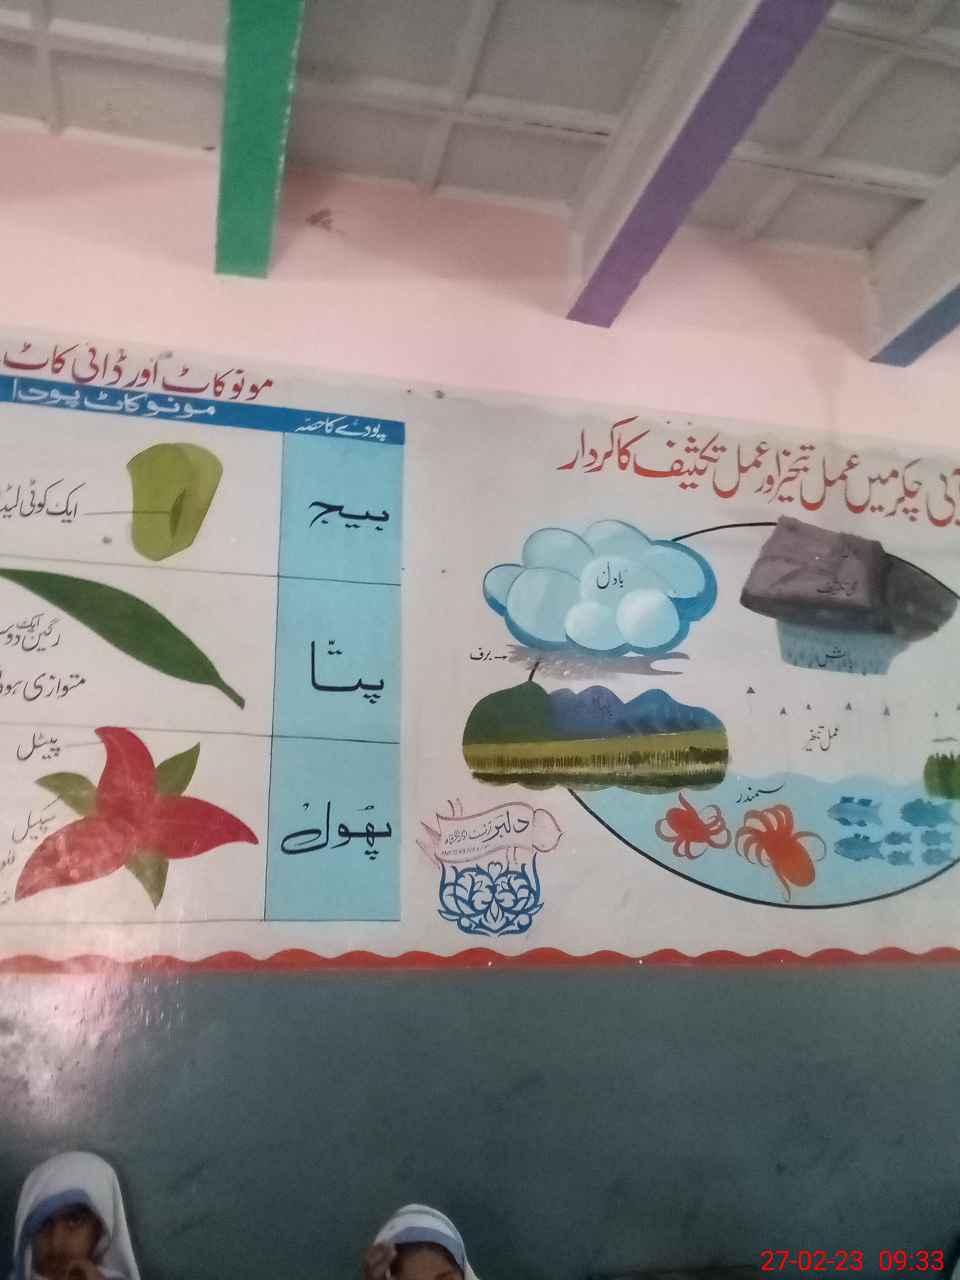 مونوکاٹ اور ڈائی کاٹ
مونوکاٹ پودا
پودے کا حصّہ
بیج
ایک کوٹی لیڈ
پتّا
متوازی
پھول
پیٹل
سیپل
آبی چکر میں عمل تبخیر اور عمل تکثیف کا کردار
بادل
عمل تکثیف
برف
بارش
پہاڑ
عمل تبخیر
سمندر
دلبر
27-02-23 09:33